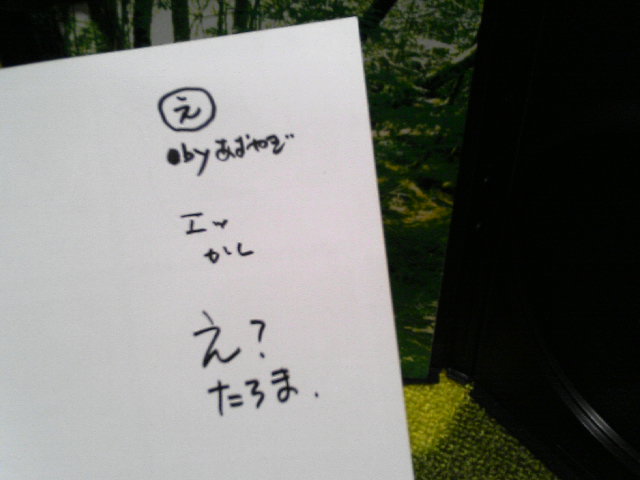 え
by あおやぎ
エw
かし
え?
たろま.